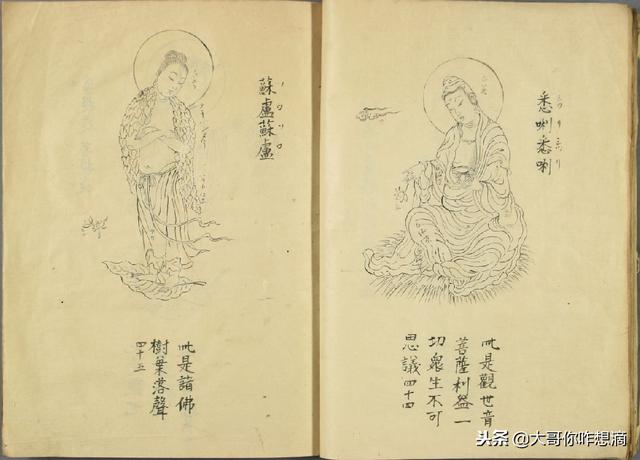 悉唎悉唎
此是觀世音
菩薩利益一
切衆生不可
思議 四十四
蘇盧蘇盧
此是諸佛
樹葉落聲
四十五
头条 @大哥你咋想滴